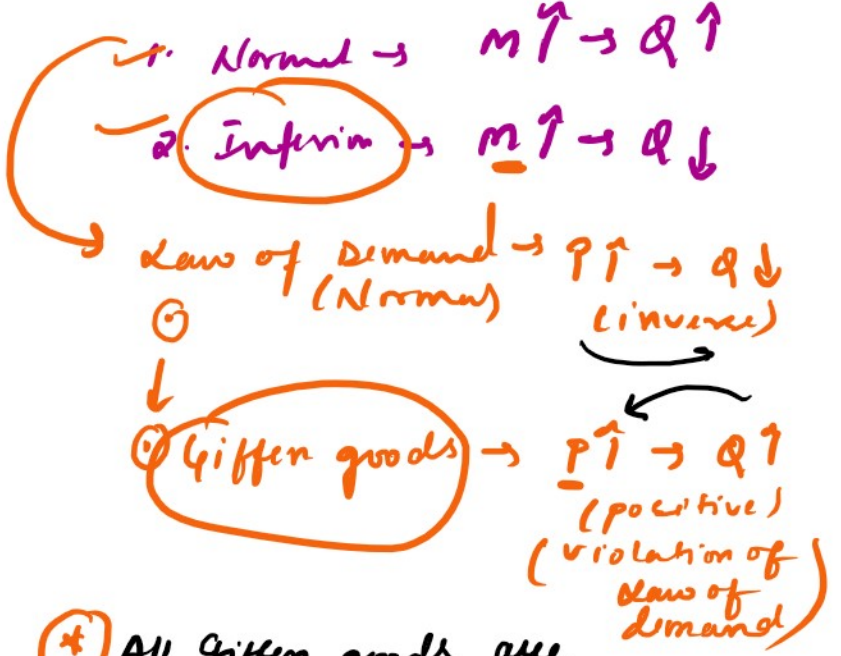 1. Normal → M↑ → Q↑
2. Inferior → M↑ → Q↓
Law of Demand → P↑ → Q↓
(Normal) (inverse)
Giffen goods → P↑ → Q↑
(positive)
(violation of
Law of
demand)
* All Giffen goods are